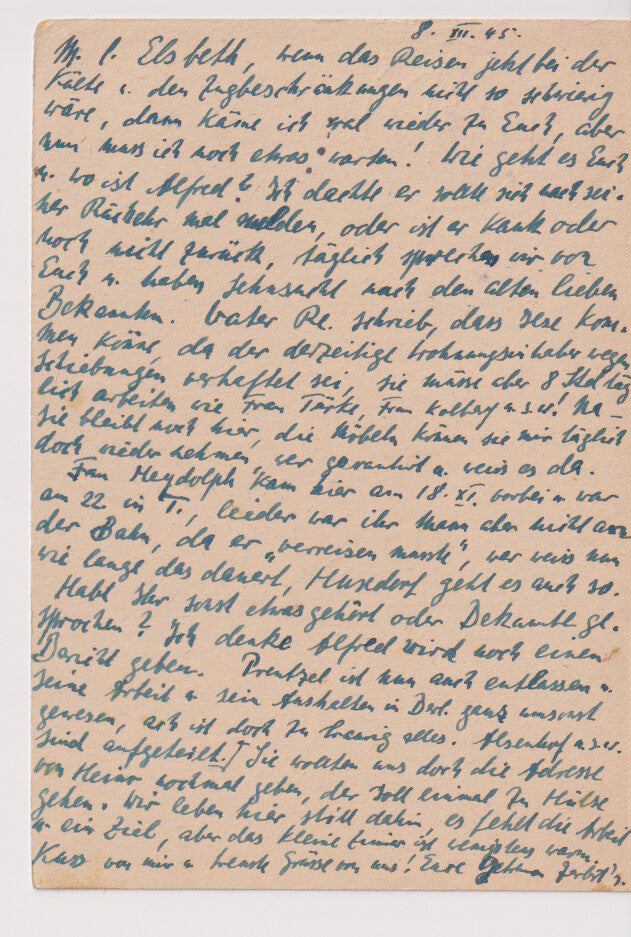 8. XII. 45.
M. l. Elsbeth, wenn das Reisen jetzt bei der
Kälte u. den Zugbeschränkungen nicht so schwierig
wäre, dann käme ich mal wieder zu Euch, aber
nun muss ich noch etwas warten! Wie geht es Euch
u. wo ist Alfred? Ich dachte er sollte sich nach sei-
ner Rückkehr mal melden, oder ist er krank oder
noch nicht zurück, täglich sprechen wir von
Euch u. haben Sehnsucht nach den alten lieben
Bekannten. Vater Re. schrieb, dass Ilse kom-
men könne, da der derzeitige Wohnungsinhaber wegen
Schiebungen verhaftet sei, sie müsse aber 8 Std. täg
lich arbeiten wie Frau Türke, Frau Kolberg u.s.w! Na
sie bleibt noch hier, die Möbeln können sie mir täglich
doch wieder nehmen, wer garantirt u. weiss es da.
Frau Heydolph kam hier am 18. XI. vorbei u. war
am 22. in T., leider war ihr Mann aber nicht an
der Bahn, da er "verreisen musste", wer weiss nun
wie lange das dauert, geht es auch so.
Habt Ihr sonst etwas gehört oder Bekannte ge-
sprochen? Ich denke Alfred wird noch einen
Bericht geben. Prentzel ist nun auch entlassen u.
seine Arbeit u. sein Aushalten in ganz umsonst
gewesen, ach ist doch zu traurig alles. Alsenhof u.s.w.
sind aufgeteilt.! Sie wollten uns doch die Adresse
von Heinr nochmal geben, der soll einmal zu Hülse
gehen. Wir leben hier still dahin, es fehlt die Arbeit
u. ein Ziel, aber das kleine Zimmer ist wenigstens warm.
Kuss von mir u. Grüsse von uns! Eure Zerbst's.